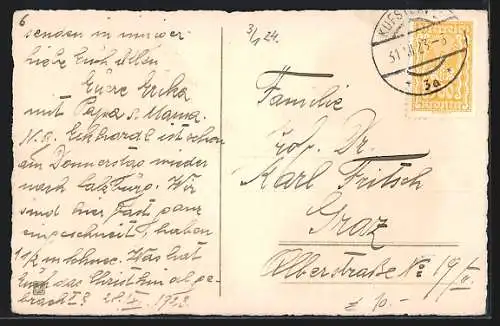 6
senden in inniger
Liebe Euch allen
Eure Erika
mit Papa u. Mama.
N.S. Ekkehardt ist schon
am Donnerstag wieder
nach Salzburg. Wir
sind hier fast ganz
eingeschneit, haben
1 1/2 m Schnee. Was hat
Euch das Christkindl ge-
bracht? 28. XII. 1923
3/1 24.
KUFSTEIN
31. XII. 23
* 3a *
Familie
Prof. Dr.
Karl Fritsch
Graz
Alberstraße No: 19/II.